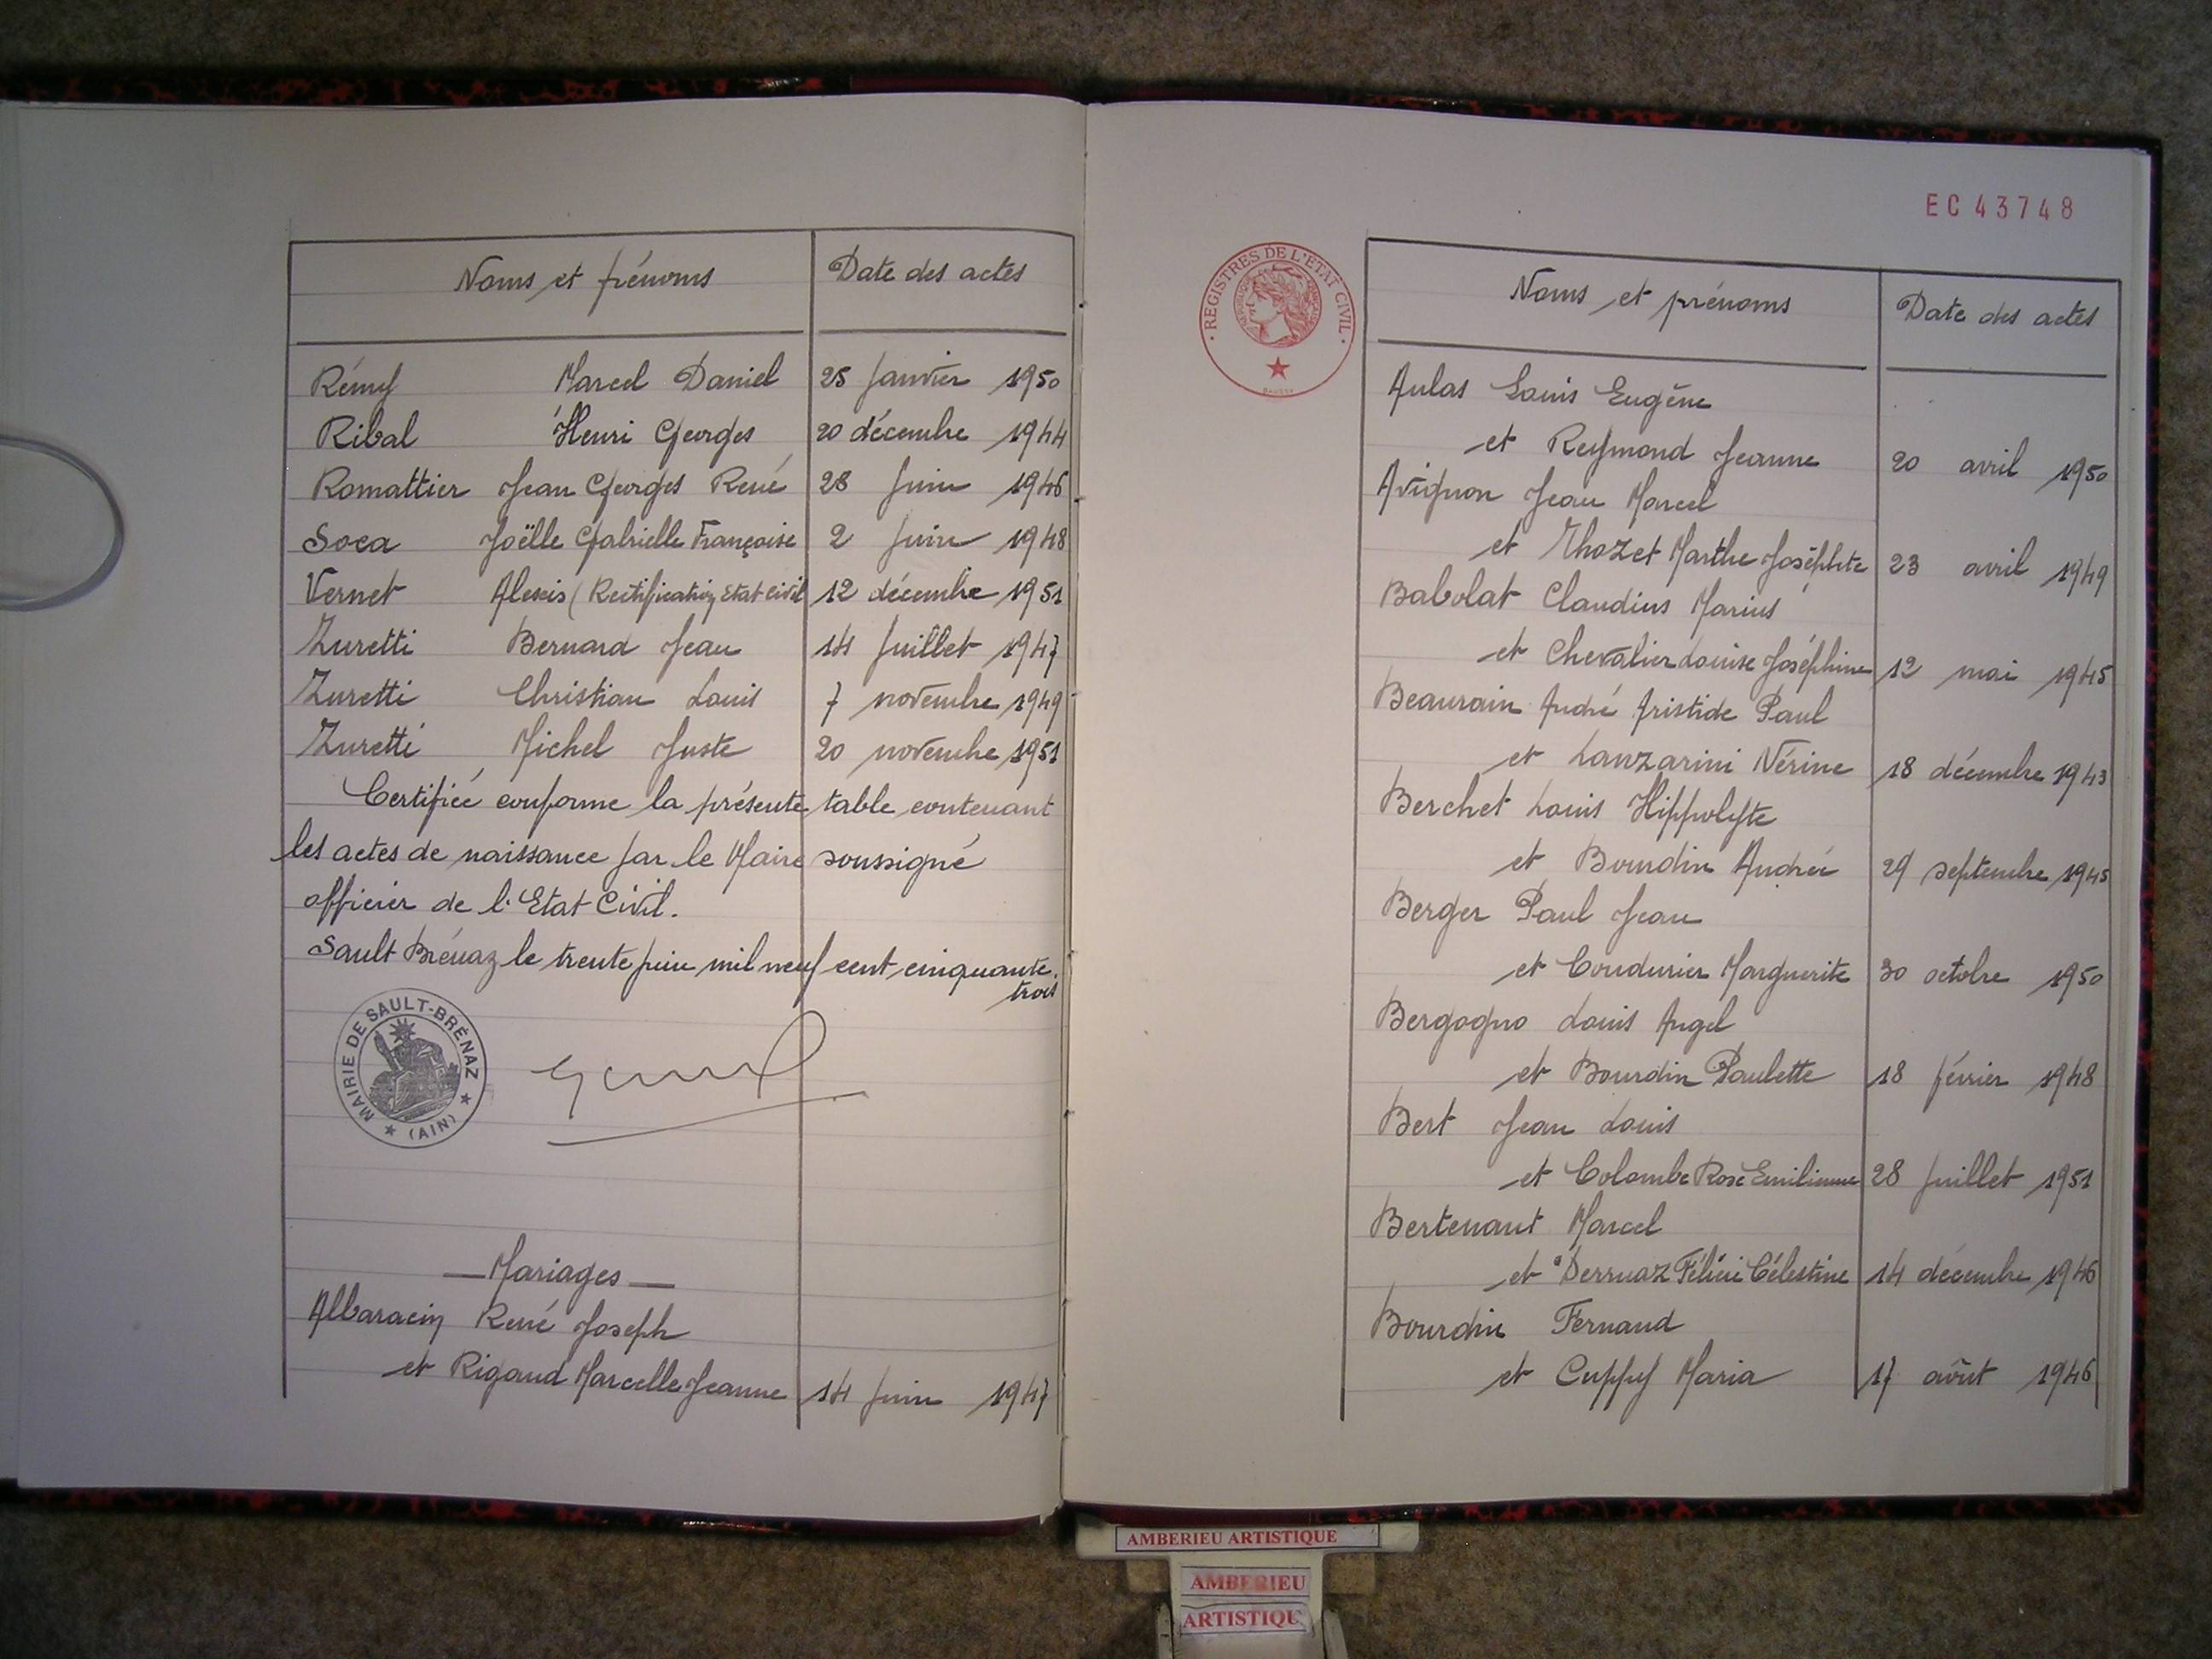 Noms et prénoms Date des actes
Rémy Marcel Daniel 25 Janvier 1950
Ribal Henri Georges 20 décembre 1944
Romattier Jean Georges René 28 Juin 1946
Soca Joëlle Gabrielle Françoise 2 Juin 1948
Vernet Alexis (Rectification Etat civil 12 décembre 1951
Zuretti Bernard Jean 14 Juillet 1947
Zuretti Christian Louis 7 novembre 1949
Zuretti Michel Juste 20 novembre 1951
Certifiée conforme la présente table contenant
les actes de naissance par le Maire soussigné
officier de l'Etat Civil.
Sault Brénaz le trente juin mil neuf cent cinquante.
trois
MAIRIE DE SAULT-BRÉNAZ
(AIN)
Mariages
Albaracin René Joseph
et Rigaud Marcelle Jeanne 14 Juin 1947
EC 43748
REGISTRES DE L'ETAT CIVIL
Noms et prénoms Date des actes
Aulas Louis Eugène
et Reymond Jeanne 20 avril 1950
Avignon Jean Marcel
et Thozet Marthe Joséphte 23 avril 1949
Babolat Claudius Marius
et Chevalier Louise Joséphine 12 mai 1945
Beaurain André Aristide Paul
et Lanzarini Nérine 18 décembre 1943
Berchet Louis Hippolyte
et Bourdin Andrée 29 septembre 1945
Berger Paul Jean
et Coudurier Marguerite 30 octobre 1950
Bergogno Louis Angel
et Bourdin Paulette 18 février 1948
Bert Jean Louis
et Colombe Rose Emilienne 28 Juillet 1951
Bertenant Marcel
et Derruaz Félicie Célestine 14 décembre 1946
Bourdin Fernand
et Cuppy Maria 17 août 1946
AMBERIEU ARTISTIQUE
AMBERIEU
ARTISTIQU